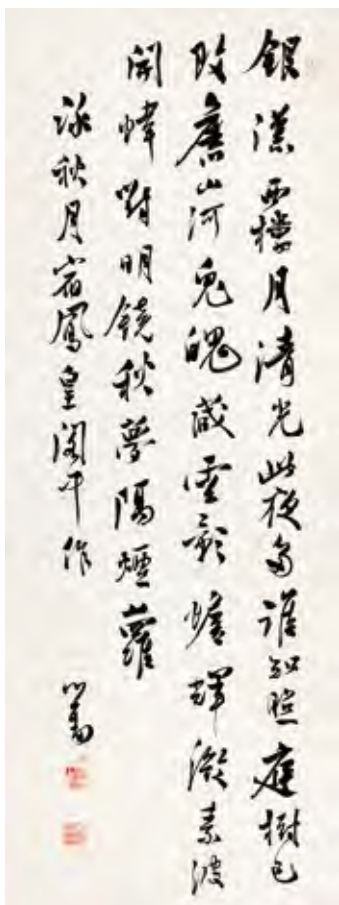 銀漢西樓月清光此夜多誰知照庭樹已
改舊山河兔魄藏雲影蟾輝澂素波
開幃對明鏡秋夢隔煙蘿
詠秋月宿鳳皇閣中作 心畬